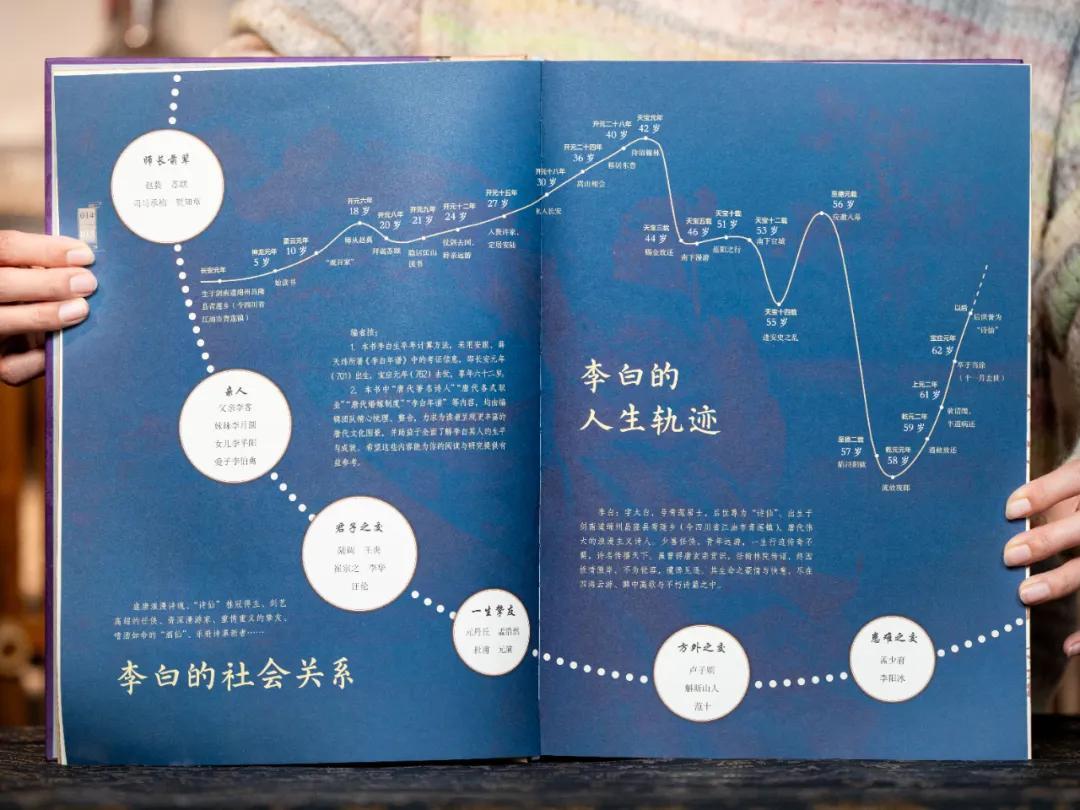 014
师长前辈
赵蕤 苏颋
司马承祯 贺知章
亲人
父亲李客
妹妹李月圆
女儿李平阳
爱子李伯禽
君子之交
王炎
崔宗之 李华
汪伦
一生挚友
元丹丘 孟浩然
杜甫 元演
方外之交
卢子顺
斛斯山人
范十
患难之交
孟少府
李阳冰
长安元年
生于剑南道绵州昌隆
县青莲乡（今四川省
江油市青莲镇）
神龙元年
5 岁
始读书
景云元年
10 岁
“观百家”
开元六年
18 岁
师从赵蕤
开元八年
20 岁
拜谒苏颋
开元九年
21 岁
隐居匡山
读书
开元十二年
24 岁
仗剑去国，
辞亲远游
开元十五年
27 岁
入赘许家，
定居安陆
开元十八年
30 岁
初入长安
开元二十四年
36 岁
嵩山相会
开元二十八年
40 岁
移居东鲁
天宝元年
42 岁
待诏翰林
天宝三载
44 岁
赐金放还
天宝五载
46 岁
南下漫游
天宝十载
51 岁
幽州之行
天宝十二载
53 岁
南下宣城
天宝十四载
55 岁
逢安史之乱
至德元载
56 岁
应邀入幕
至德二载
57 岁
陷浔阳狱
乾元元年
58 岁
流放夜郎
乾元二年
59 岁
遇赦放还
上元二年
61 岁
欲请缨，
半道病还
宝应元年
62 岁
卒于当涂
（十一月去世）
以后
后世誉为
“诗仙”
编者按：
1. 本书李白生卒年计算方法，采用安旗、薛
天纬所著《李白年谱》中的考证信息，即长安元年
（701）出生，宝应元年（762）去世，享年六十二岁。
2. 本书中“唐代著名诗人”“唐代各式职
业”“唐代婚嫁制度”“李白年谱”等内容，均由编
辑团队精心梳理、整合，力求为读者呈现更丰富的
唐代文化图景，并助益于全面了解李白其人的生平
与成就。希望这些内容能为你的阅读与研究提供有
益参考。
李白的
人生轨迹
李白：字太白，号青莲居士，后世尊为“诗仙”，出生于
剑南道绵州昌隆县青莲乡（今四川省江油市青莲镇），唐代伟
大的浪漫主义诗人。少喜任侠，青年远游，一生行迹传奇不
羁，诗名传播天下。虽曾得唐玄宗赏识，任翰林院待诏，终因
四海云游、醉中高歌与不朽诗篇之中。
盛唐浪漫诗魂，“诗仙”桂冠得主，剑艺
高超的任侠，资深漫游家，重情重义的挚友，
嗜酒如命的“酒仙”，乐府诗革新者……
李白的社会关系